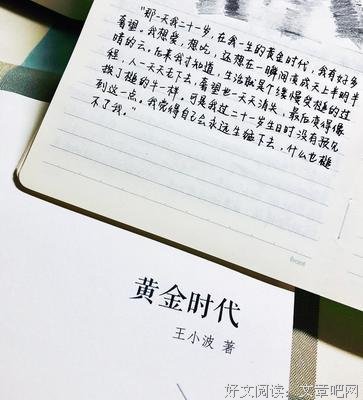 "那一天我二十一岁,在我一生的黄金时代,我有好多
奢望。我想爱,想吃,还想在一瞬间变成天上半明半
暗的云,后来我才知道,生活就是个缓慢受槌的过
程,人一天天老去下去,奢望也一天天消失,最后变得像
挨了槌的牛一样。可是我过二十一岁生日时没有预见
到这一点。我觉得自己会永远生猛下去,什么也槌
不了我。"
黄金时代
王小波 著
好文阅读:文章吧网